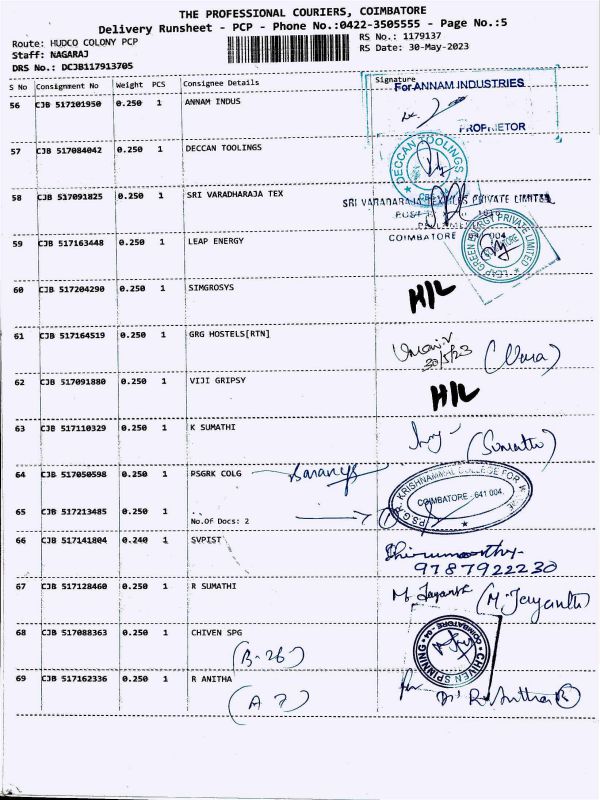 THE PROFESSIONAL COURIERS, COIMBATORE
Delivery Runsheet - PCP - Phone No.:0422-3505555 - Page No.:5
Route: HUDCO COLONY PCP
RS No.: 1179137
Staff: NAGARAJ
RS Date: 30-May-2023
DRS No.: DCJB117913705
S No Consignment No Weight PCS Consignee Details Signature
56 CJB 517101950 0.250 1 ANNAM INDUS
For ANNAM INDUSTRIES
PROPRIETOR
57 CJB 517084042 0.250 1 DECCAN TOOLINGS
DECCAN TOOLINGS
58 CJB 517091825 0.250 1 SRI VARADHARAJA TEX
SRI VARADARAJA TEXTILES PRIVATE LIMITED
POST
COIMBATORE 004
59 CJB 517163448 0.250 1 LEAP ENERGY
LEAP GREEN ENERGY PRIVATE LIMITED
60 CJB 517204290 0.250 1 SIMGROSYS H/L
61 CJB 517164519 0.250 1 GRG HOSTELS[RTN]
30/5/23 (Uma)
62 CJB 517091880 0.250 1 VIJI GRIPSY H/L
63 CJB 517110329 0.250 1 K SUMATHI (Sumathi)
64 CJB 517050598 0.250 1 PSGRK COLG Saranya
P.S.G.R. KRISHNAMMAL COLLEGE FOR
COIMBATORE - 641 004.
65 CJB 517213485 0.250 1 ..
No.Of Docs: 2
66 CJB 517141804 0.240 1 SVPIST Thirumoorthy
9787922230
67 CJB 517128460 0.250 1 R SUMATHI M. Jayanthi (M. Jayanthi)
68 CJB 517088363 0.250 1 CHIVEN SPG
CHIVEN SPINNING
COIMBATORE - 04
(B-26)
69 CJB 517162336 0.250 1 R ANITHA
(A 7)